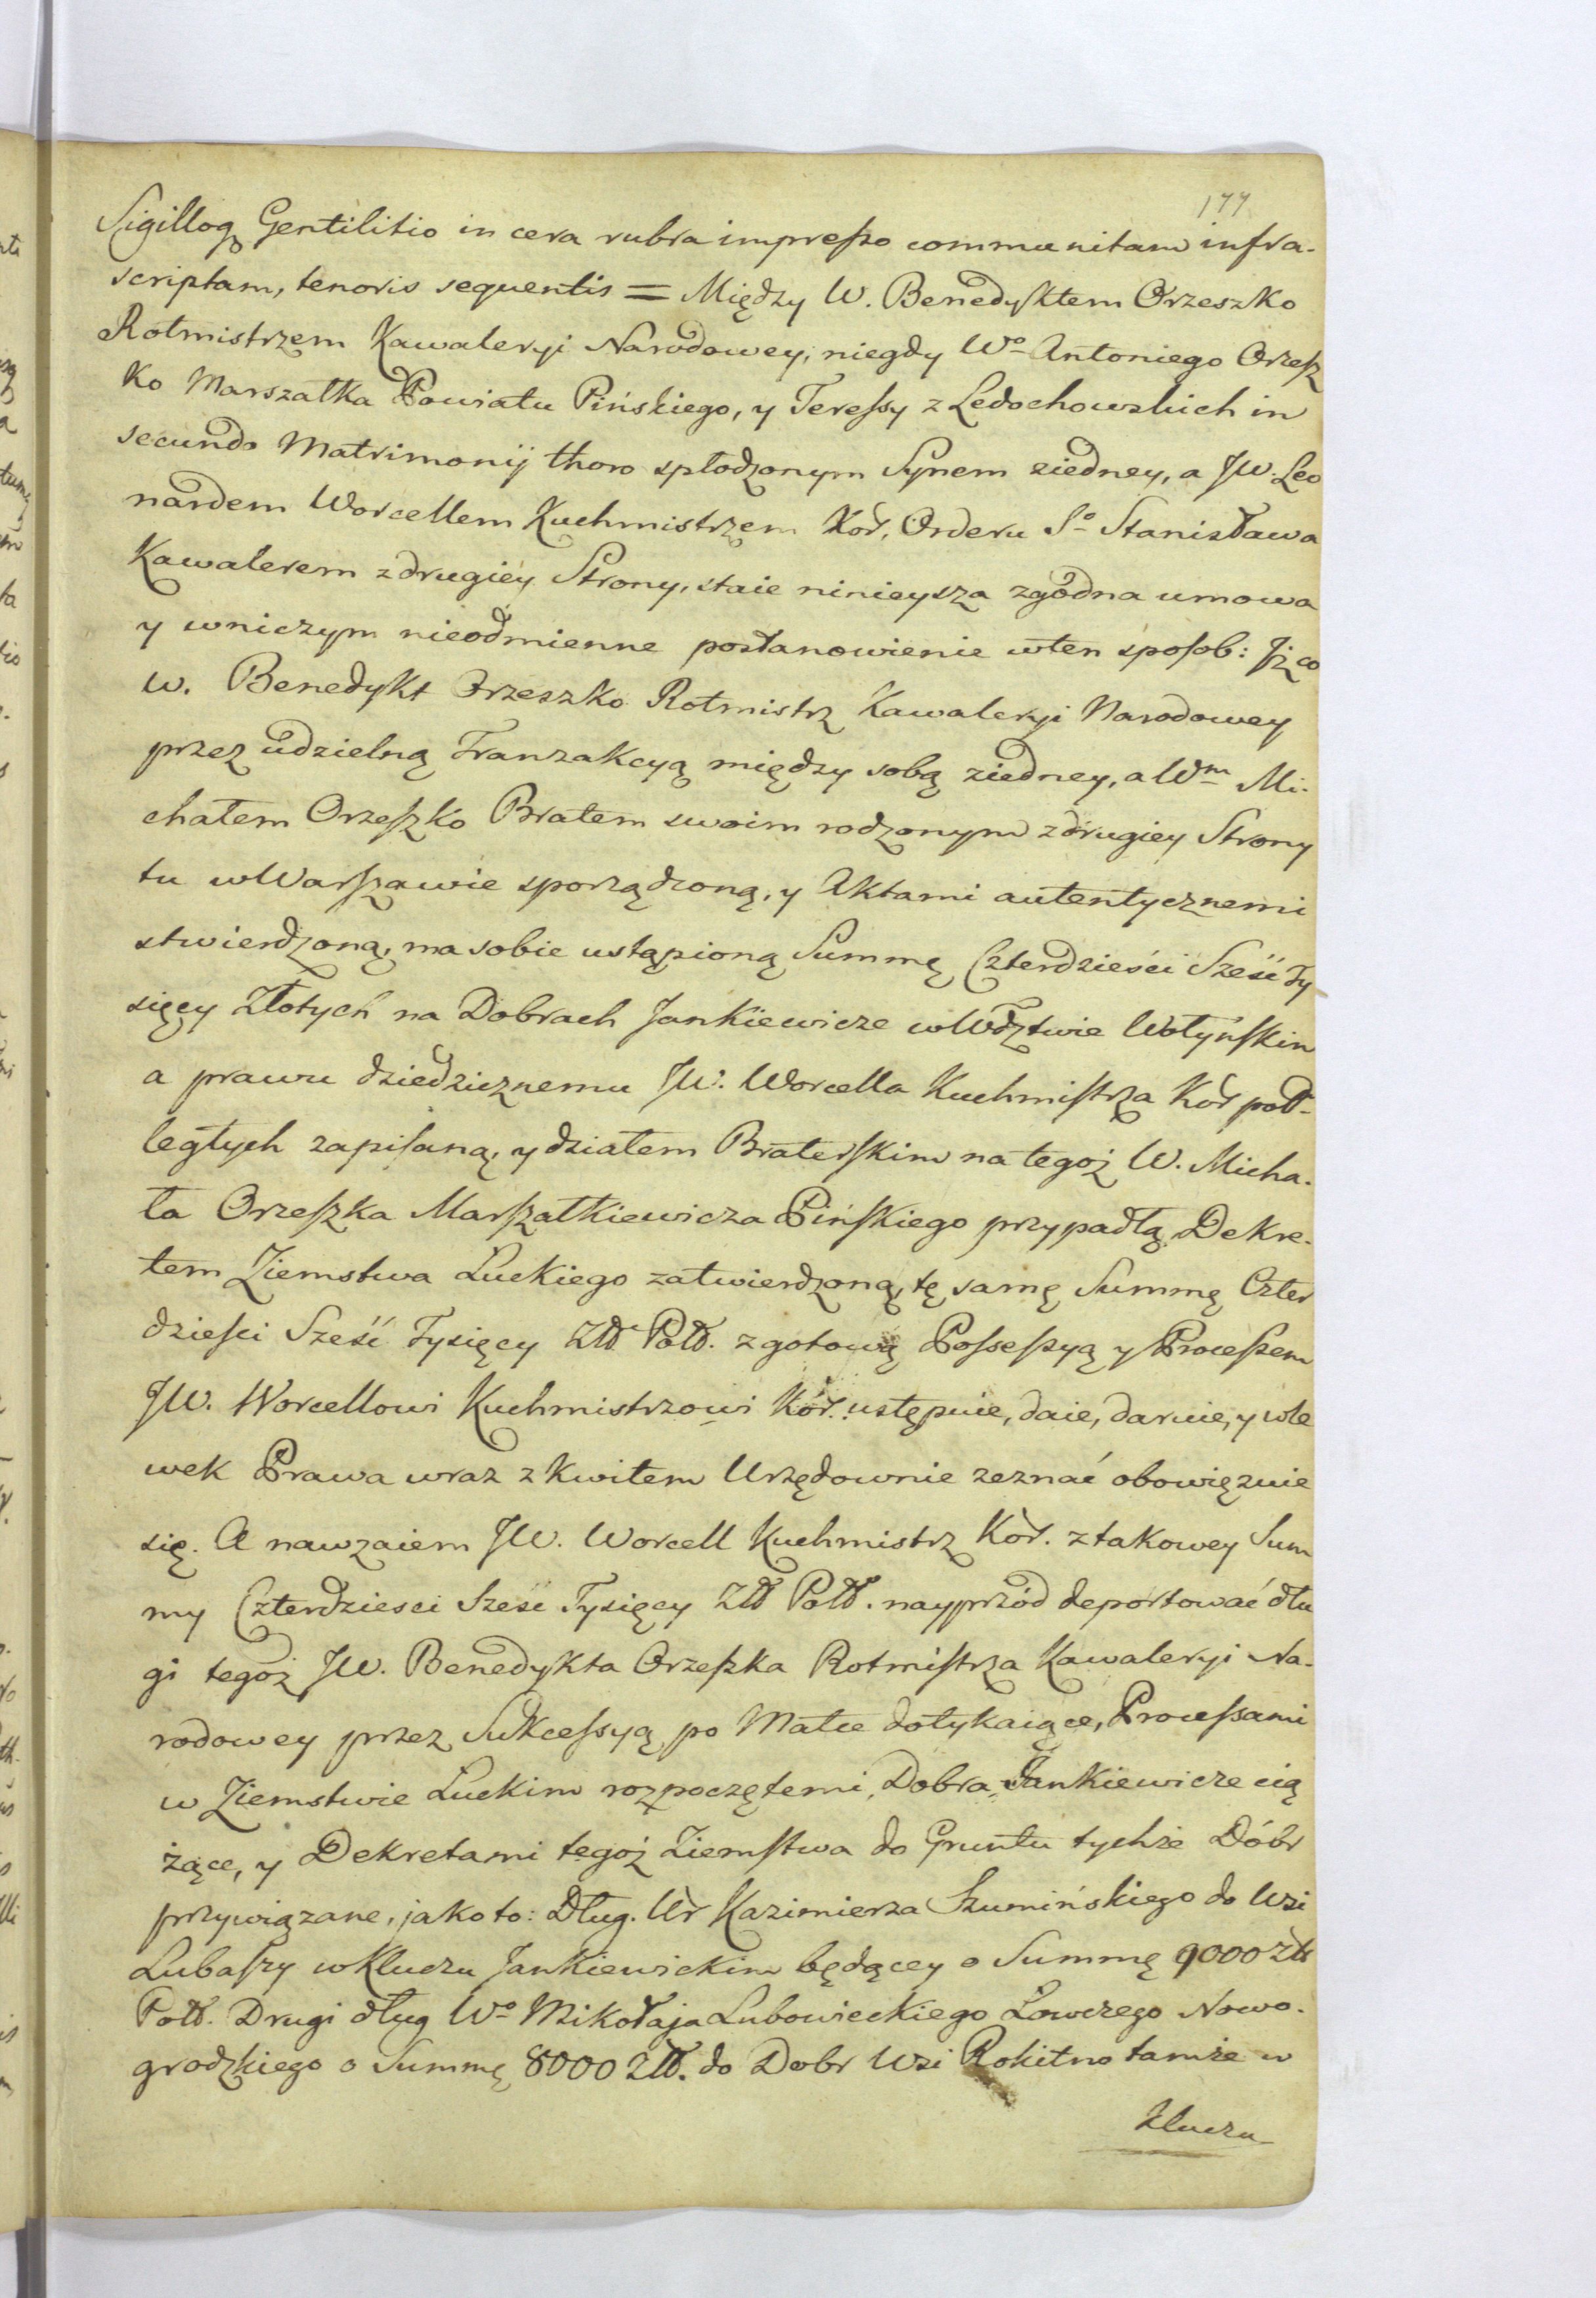 177
Sigilloq Gentilitio in cera rubra impresso communitam infra-
scriptam, tenoris sequentis = Między W. Benedyktem Orzeszko
Rotmistrzem Kawaleryi Narodowey, niegdy Wo Antoniego Orzesz
ko Marszałka Powiatu Pińskiego, y Teressy z Ledochowskich in
secundo Matrimonij thoro spłodzonym Synem ziedney, a JW. Leo
nardem Worcellem Kuchmistrzem Kor. Orderu So Stanisława
Kawalerem zdrugiey Strony, staie ninieysza zgodna umowa
y wniczym nieodmienne postanowienie wten sposob: Jż co
W. Benedykt Orzeszko Rotmistrz Kawaleryi Narodowey
przez udzielną Tranzakcyą między sobą ziedney, a Wm Mi-
chałem Orzeszko Bratem swoim rodzonym zdrugiey Strony
tu wWarszawie sporządzoną, y Aktami autentycznemi
stwierdzoną, ma sobie ustąpioną Summę Czterdzieści Sześć Ty
sięcy Złotych na Dobrach Jankiewicze wWdztwie Wołyńskim
a prawu dziedzicznemu JW. Worcella Kuchmistrza Kor pod-
ległych zapisaną, y działem Braterskim na tegoż W. Micha-
ła Orzeszka Marszałkiewicza Pińskiego przypadłą, Dekre-
tem Ziemstwa Łuckiego zatwierdzoną, tę samę Summę Czter
dzieści Sześć Tysięcy Złł Poll. z gotową Possessyą y Processem
JW. Worcellowi Kuchmistrzowi Kor. ustępuie, daie, daruie, y wle
wek Prawa wraz z kwitem Urzędownie zeznać obowięzuie
się. A nawzaiem JW. Worcell Kuchmistrz Kor. ztakowey Sum
my Czterdziesci Sześć Tysięcy Złł Poll. nayprzód deportować dłu
gi tegoż JW. Benedykta Orzeszka Rotmistrza Kawaleryi Na-
rodowey przez Sukcessyą po Matce dotykaiące, Processami
w Ziemstwie Łuckim rozpoczętemi, Dobra Jankiewicze cią
żące, y Dekretami tegoż Ziemstwa do Gruntu tychże Dóbr
przywiązane, jako to: Dług. Ur Kazimierza Szumińskiego do Wsi
Lubaszy wKluczu Jankiewickim będącey o Summę 9000 złł
Poll. Drugi dług Wo Mikołaja Lubowieckiego Łowczego Nowo-
grodzkiego o Summę 8000 Złł. do Dobr Wsi Rokitno tamże w
Kluczu